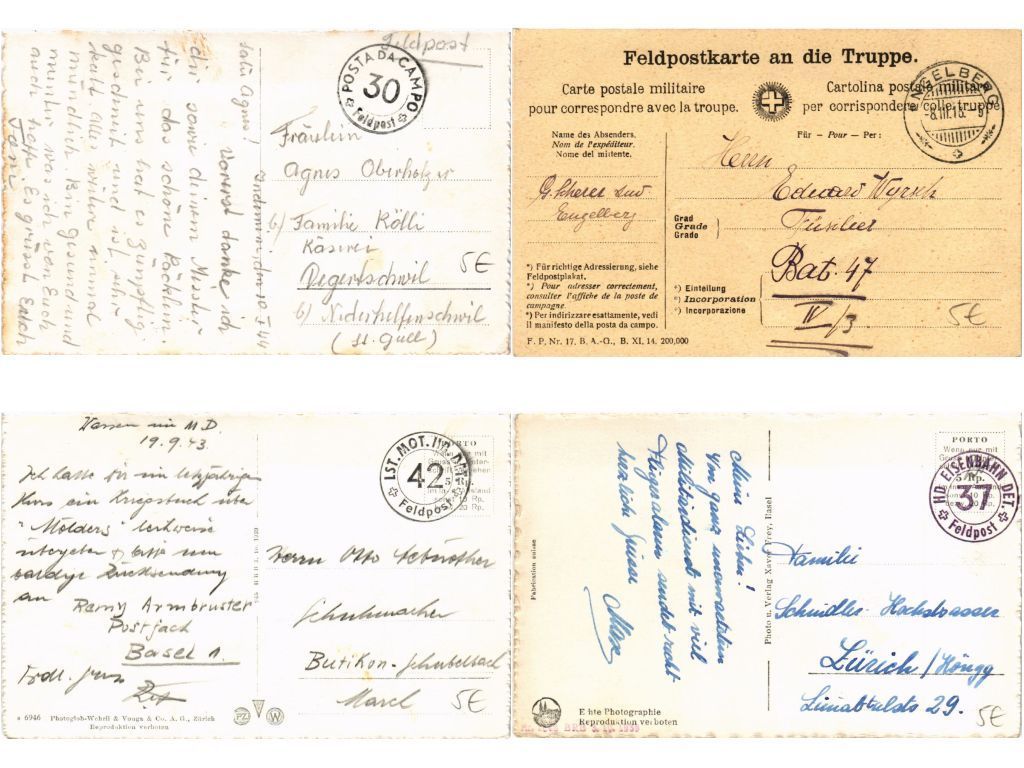 Feldpost
POSTA DA CAMPO
30
Feldpost
Fräulein
Agnes Oberholzer
b/ Familie Kölli
Käserei
Degertschwil
b/ Niederhelfenschwil
(St. Gall)
5€
Andermatt, den 10. I 44
Liebe Agnes!
Vorerst danke ich
dir sowie deinem Meister
für das schöne Päcklein.
Bei uns hat es zünftig
geschneit und ist sehr
kalt. Alles weitere einmal
mündlich. Bin gesund und
munter was ich von Euch
auch hoffe. Es grüsst Euch
Toni
Feldpostkarte an die Truppe.
Carte postale militaire
pour correspondre avec la troupe.
Cartolina postale militare
per corrispondere colle truppe
ENGELBERG
-8.III.15.-9
Name des Absenders.
Nom de l'expéditeur.
Nome del mittente.
Für – Pour – Per:
Herrn
Eduard Wyrsch
G. Scherer
Engelberg
Grad
Grade
Grado
Füsilier
Bat. 47
*) Für richtige Adressierung, siehe
Feldpostplakat.
*) Pour adresser correctement,
consulter l'affiche de la poste de
campagne.
*) Per indirizzare esattamente, vedi
il manifesto della posta da campo.
*) Einteilung
*) Incorporation
*) Incorporazione
IV/3
5€
F. P. Nr. 17. B. A.-G., B. XI. 14. 200,000
Wassen im M.D.
19.9.43
Ich hatte Dir im letztjährigen
Kurs ein Kriegsbuch über
"Mölders" leihweise
übergeben & bitte um
baldige Rücksendung
an
Remy Armbruster
Postfach
Basel 1.
Frdl. Gruss
LST. MOT. DET.
42
Feldpost
PORTO
Herrn Otto
Schuhmacher
Butikon-Schübelbach
March
5€
s 6946 Photoglob-Wehrli & Vouga & Co. A. G., Zürich
Reproduktion verboten
PZ
W
Meine Lieben!
Von ganz unerwartetem
Militärdienst mit viel
Hügselaren sendet recht
herzliche Grüsse
Max
Fabrication suisse
Photo u. Verlag Xaver Frey, Basel
PORTO
5 Rp.
HD EISENBAHN DET.
37
Feldpost
Familie
Schmidler-Hochstrasser
Zürich/Höngg
Limattalstr. 29.
5€
Echte Photographie
Reproduktion verboten